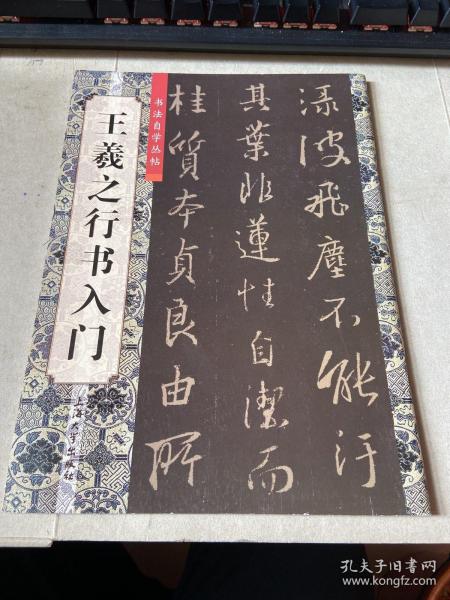 王羲之行书入门
书法自学丛帖
渌波飛塵不能汙
其葉非蓮性自潔而
桂質本貞良由所
上海大学出版社
孔夫子旧书网
www.kongfz.com